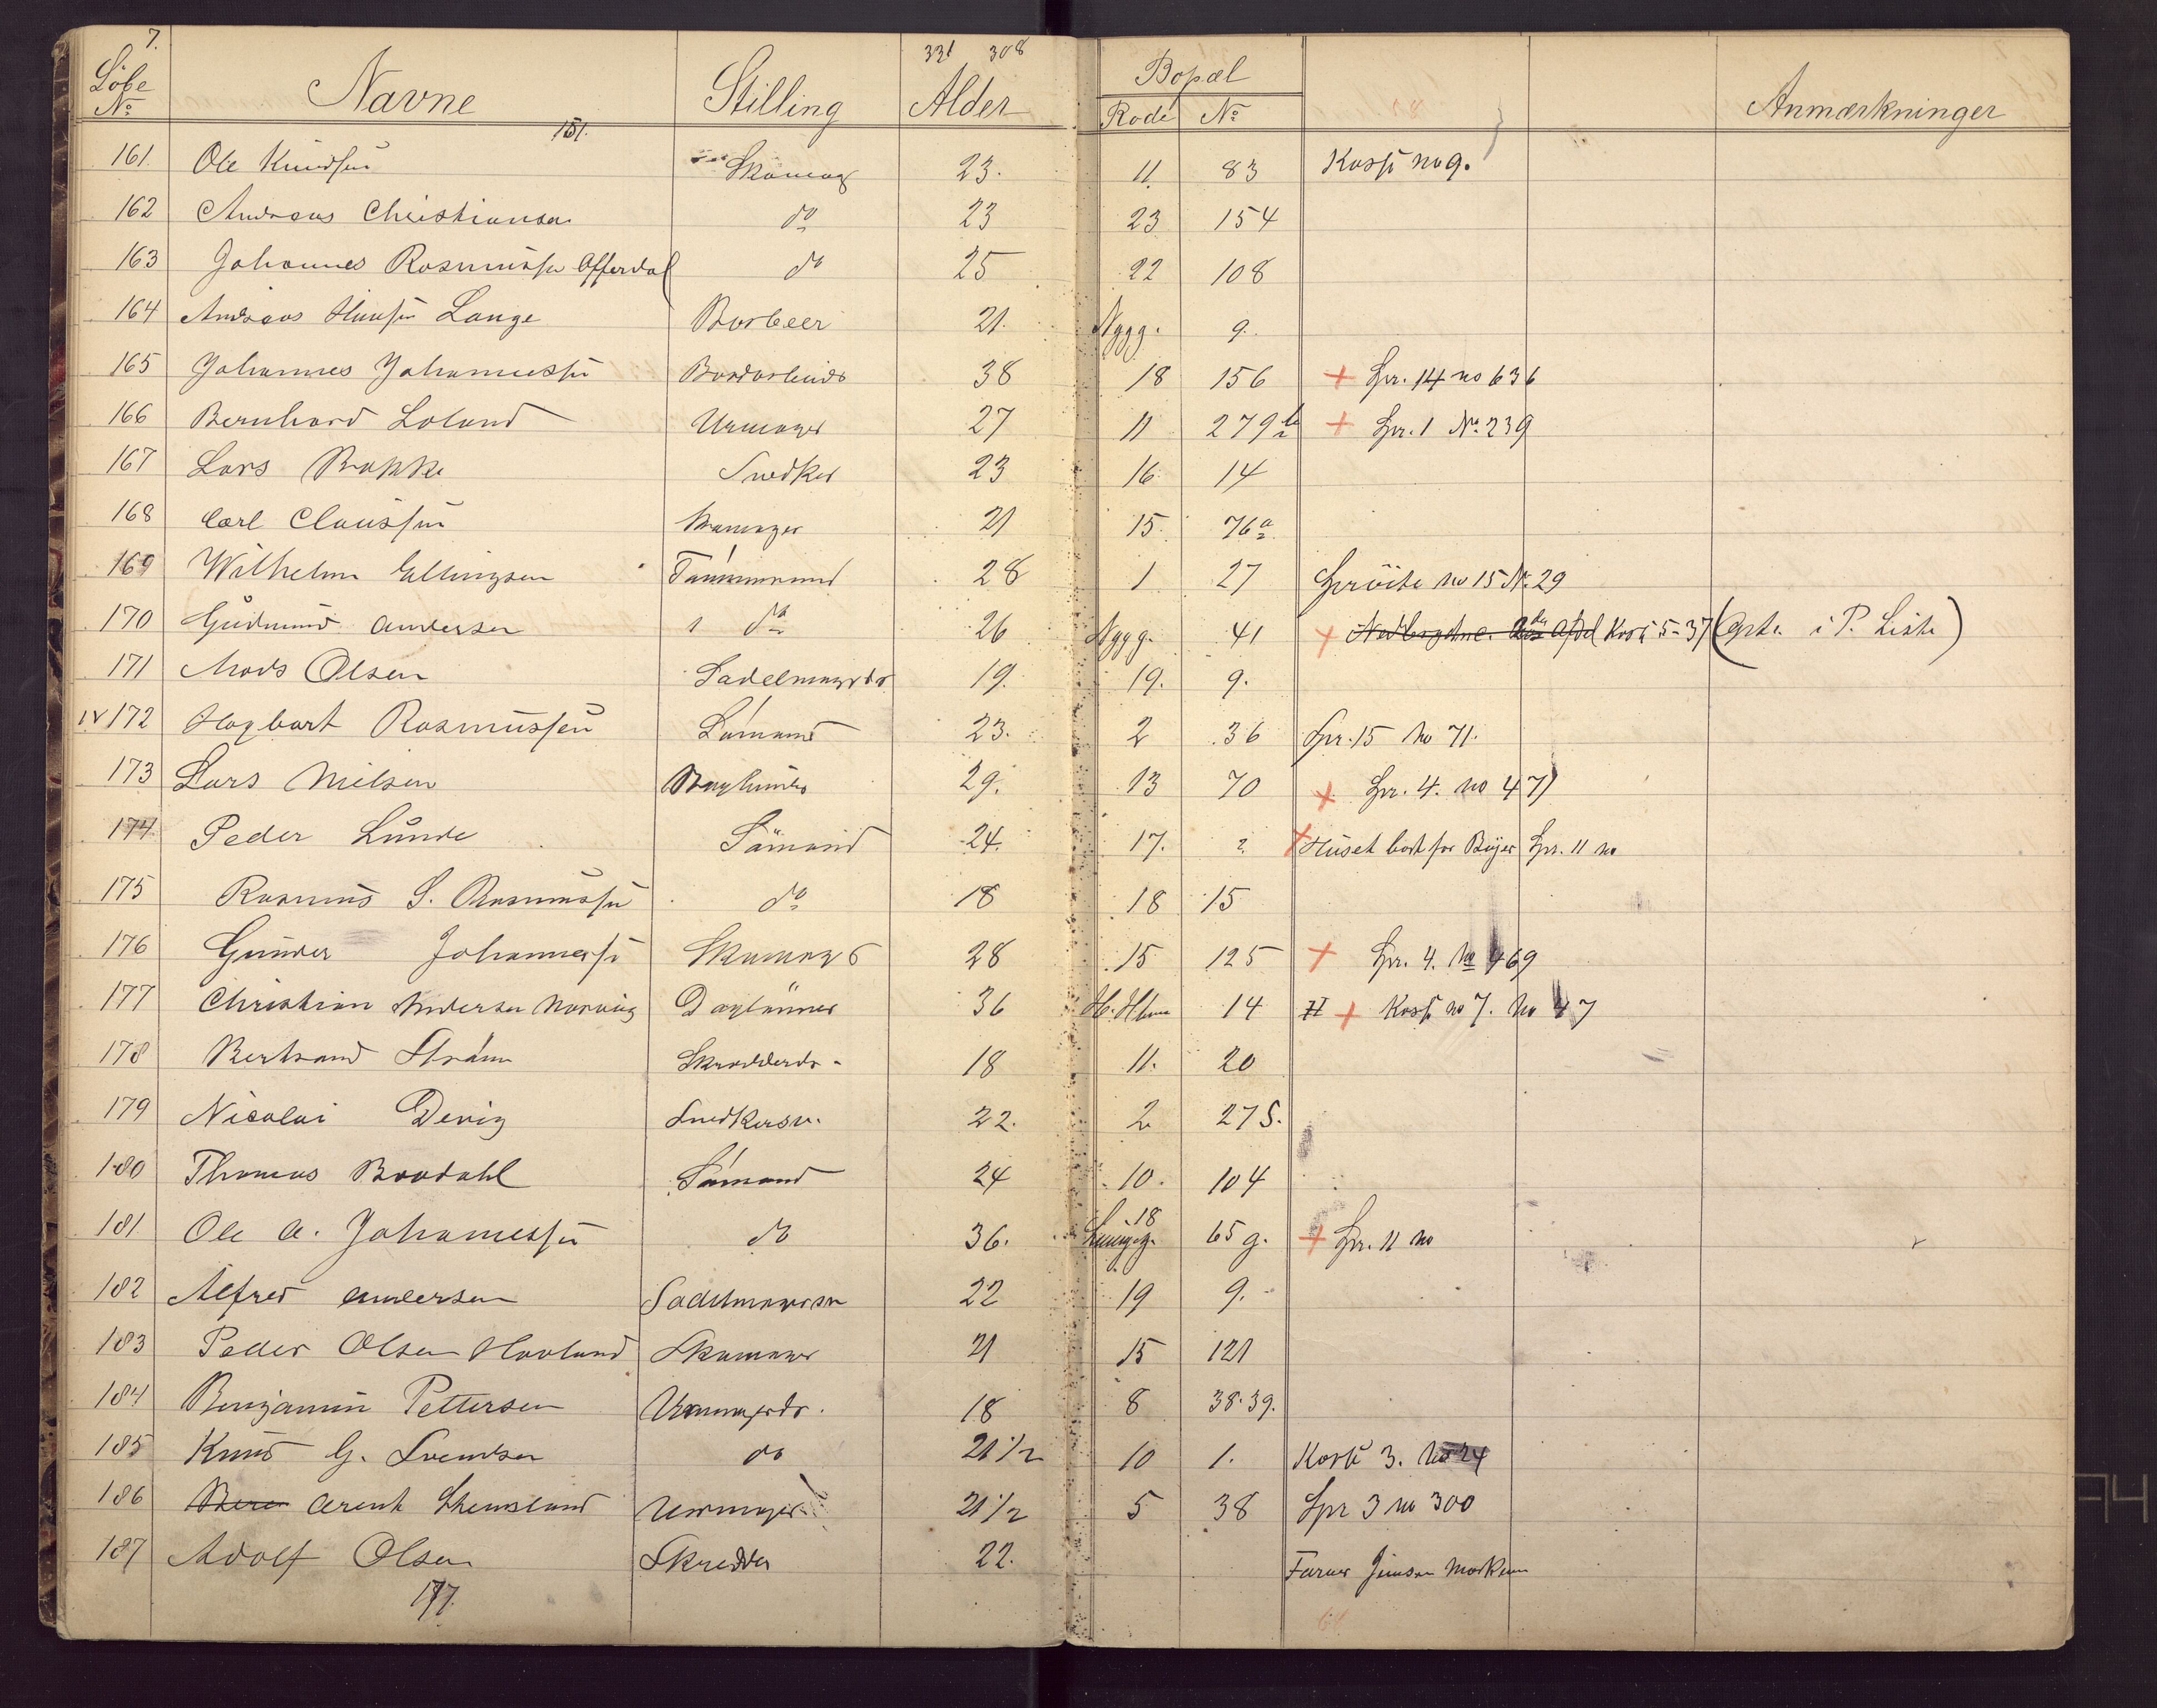 7.
331 308
Löbe No Navne Stilling Alder Bopæl Rode No Anmærkninger
151.
161. Ole Knudsen Skomag 23. 11. 83 Kasse no 9.
162 Andreas Christiansen do 23 23 154
163 Johannes Rasmussen Offerdal do 25 22 108
164 Andreas Hansen Lange Barbeer 21. Nygg. 9.
165 Johannes Johannessen 38 18 156 + Spr. 14 no 636
166 Bernhard Loland Urmager 27 11 279 b + Spr. 1 No. 239
167 Lars Bakke Snedker 23 16 14
168 Carl Claussen 21 15. 76 a
169 Wilhelm Ellingsen Tømmermand 28 1 27 Sprøite no 15 No. 29
170 Gudmund Andersen 1 do 26 Nygg. 41 + Afdel Kost 5-37 (Opt. i P. Liste)
171 Mads Olsen Sadelmagerdr 19. 19. 9.
172 Hagbart Rasmussen Sömand 23. 2 36 Spr. 15 No 71.
173 Lars Nielsen 29. 13 70 + Spr. 4. no 471
174 Peder Lunde Sömand 24. 17. 2. + Huset bort for Byen Spr. 11 no
175 Rasmus S. Rasmussen do 18 18 15
176 Gunder Johannessen Skomager 28 15 125 + Spr. 4. No 469
177 Christian Andersen Norvig Daglönner 36 14 + Kasse no 7. No 47
178 Bertrand Ström Skrædderdr. 18 11. 20
179 Nicolai Devig Snedkersv. 22. 2 27 S.
180 Thomas Brodahl Sömand 24 10. 104
181 Ole A. Johannessen do 36. 18 65 g. + Spr. 11 no
182 Alfred Andersen Sadelmagersv 22 19 9.
183 Peder Olsen Hovland Skomager 21 15 121
184 Benjamin Pettersen Urmagerdr. 18 8 38-39.
185 Knud G. Svendsen do 21 1/2 10 1. Kost 3. No 24
186 Arent Skensland Urmager 21 1/2 5 38 Spr 3 no 300
187 Adolf Olsen Skrædder 22. Farver Jensen Marken
177.